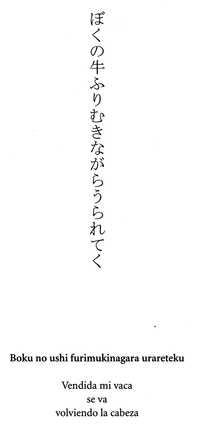 ぼくの牛ふりむきながらうられてく
Boku no ushi furimukinagara urareteku
Vendida mi vaca
se va
volviendo la cabeza